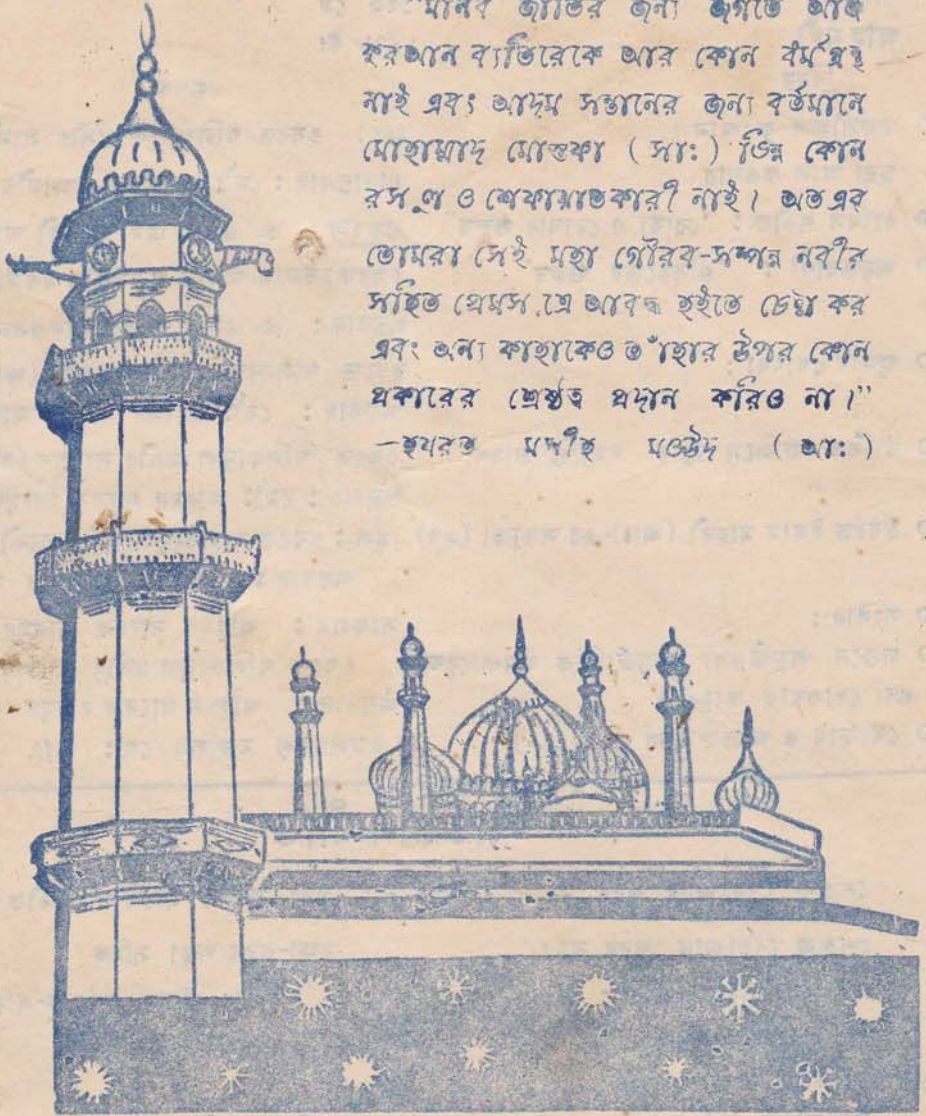 "মানব জাতির জন্য জগতে আজ
কুরআন ব্যতিরেকে আর কোন ধর্ম গ্রন্থ
নাই এবং আদম সন্তানের জন্য বর্তমানে
মোহাম্মাদ মোস্তফা ( সাঃ ) ভিন্ন কোন
রসূল ও শেফায়াতকারী নাই। অতএব
তোমরা সেই মহা গৌরব-সম্পন্ন নবীর
সহিত প্রেমসূত্রে আবদ্ধ হইতে চেষ্টা কর
এবং অন্য কাহাকেও তাঁহার উপর কোন
প্রকারের শ্রেষ্ঠত্ব প্রদান করিও না।"
–হযরত মসীহ মওউদ ( আঃ )